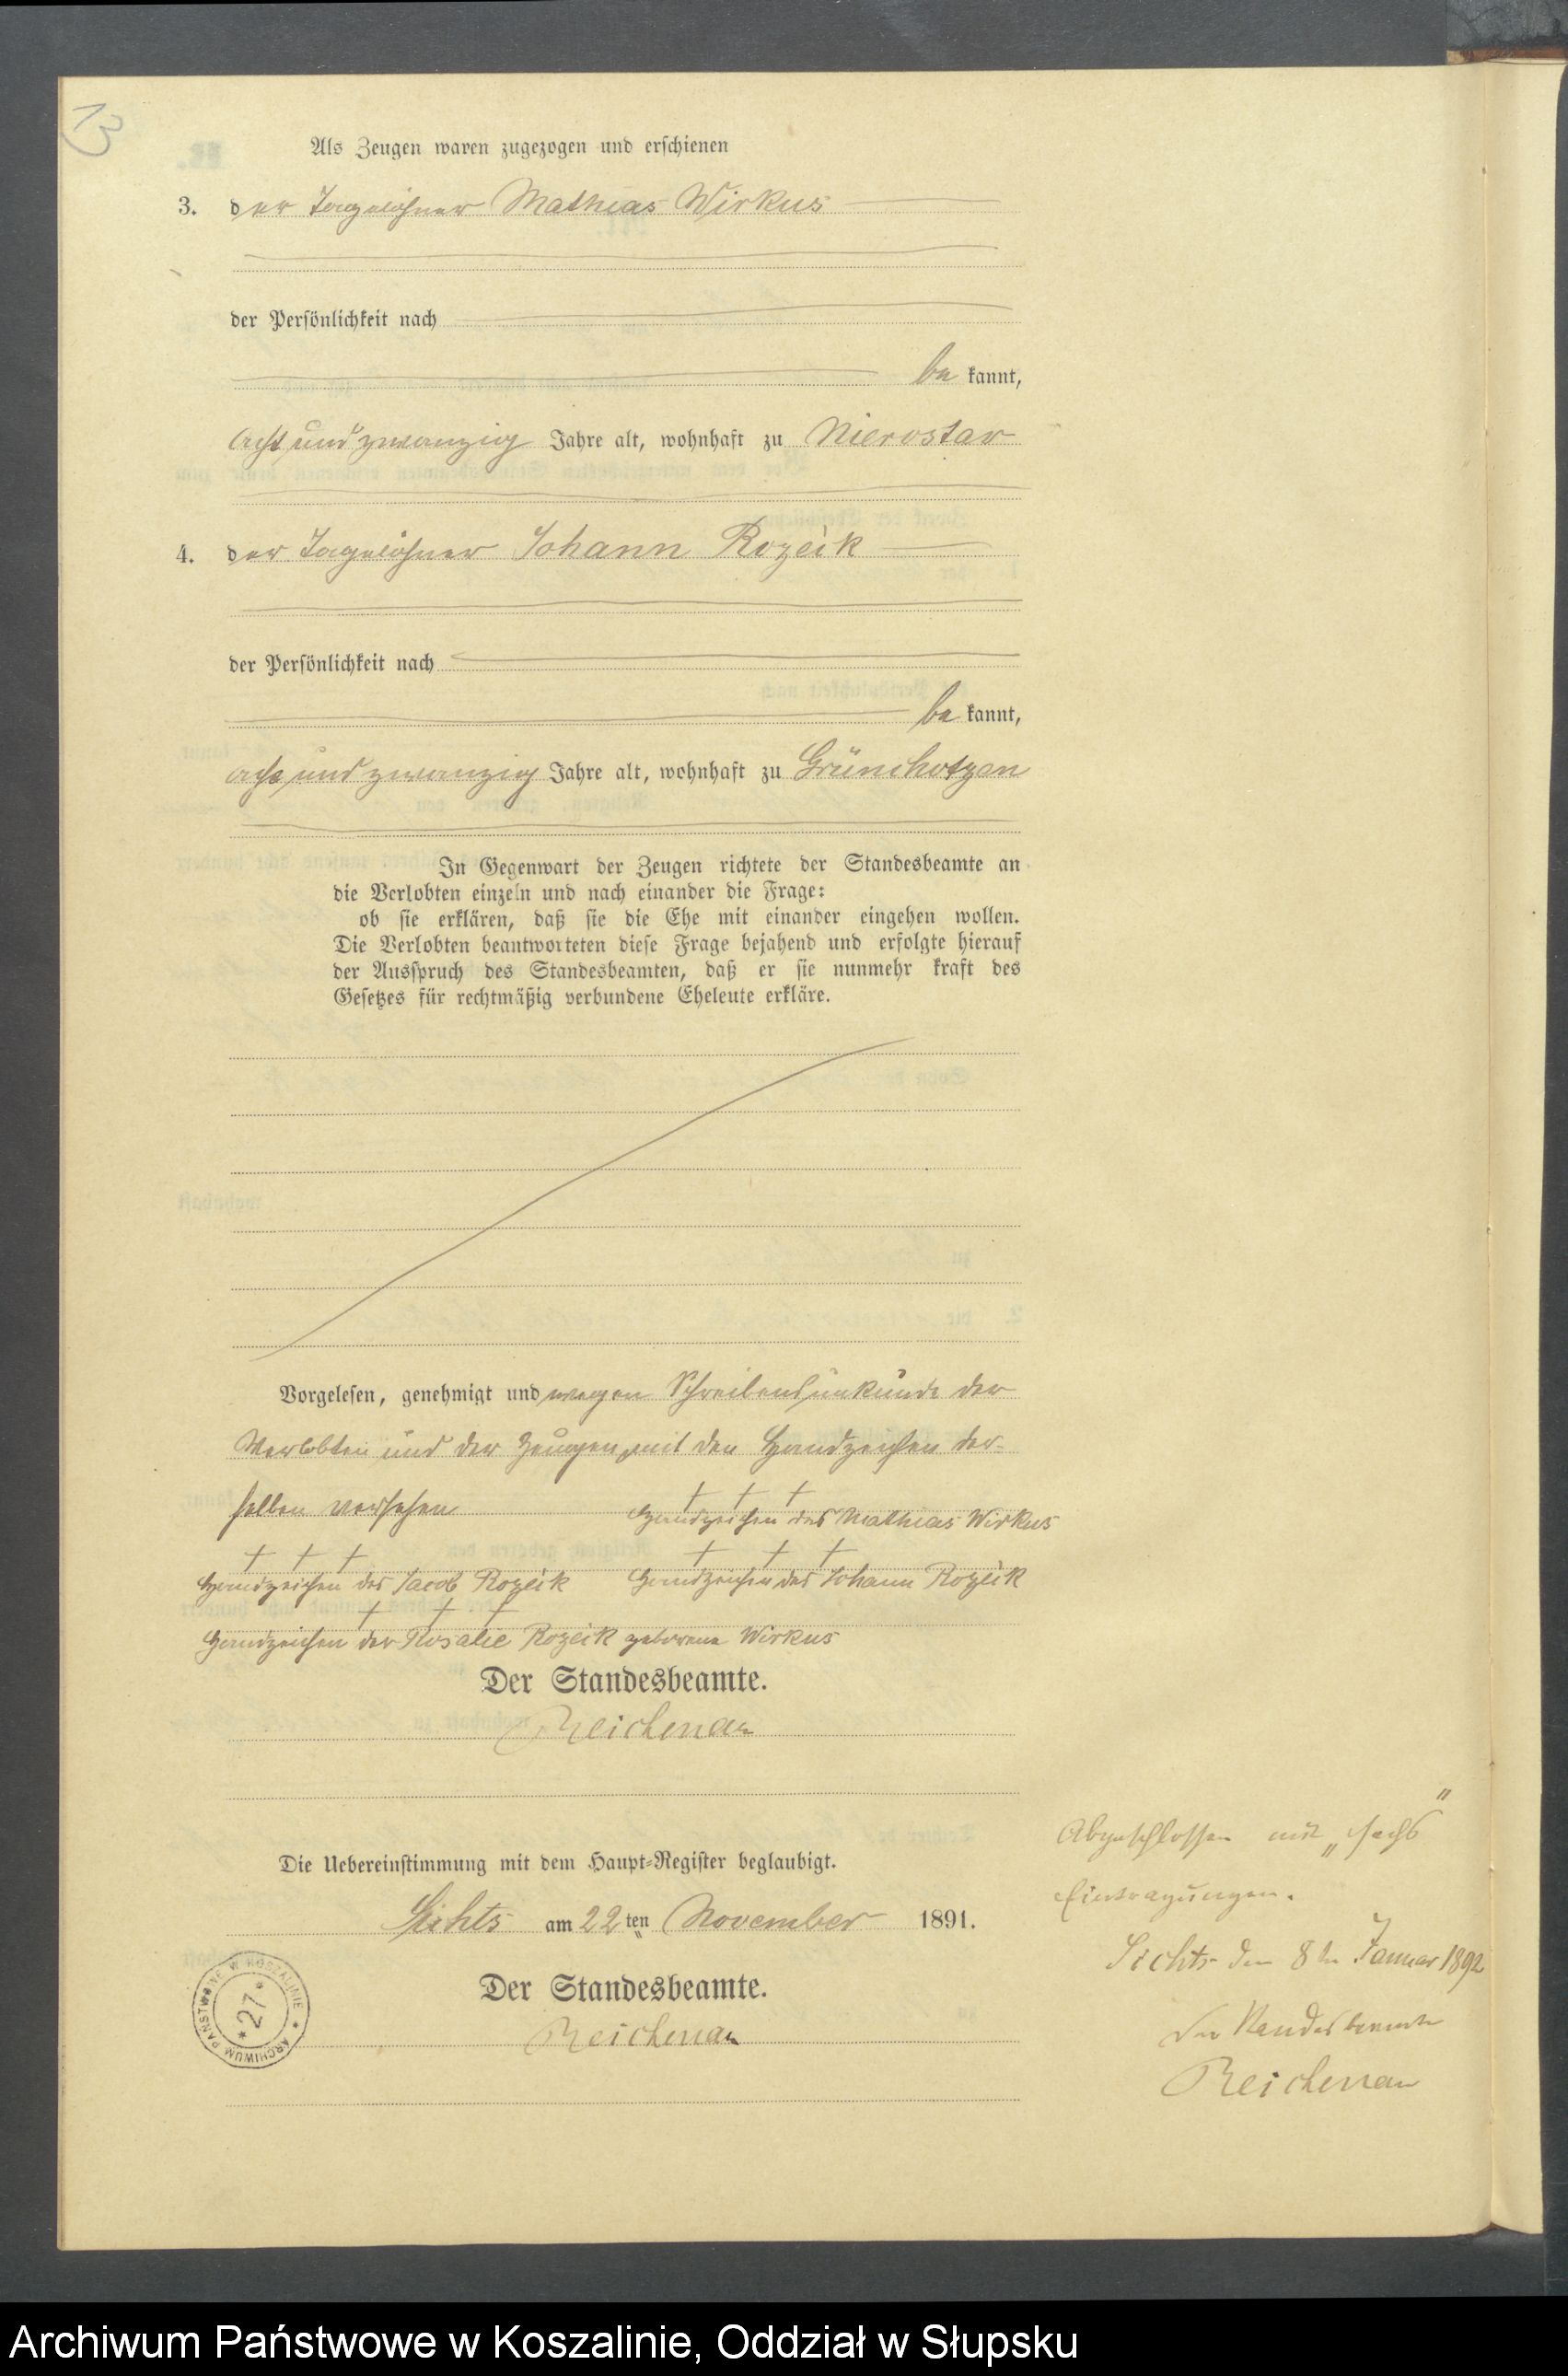 13
Als Zeugen waren zugezogen und erschienen
3. der Tagelöhner Mathias Wirkus
der Persönlichkeit nach
be kannt,
acht und zwanzig Jahre alt, wohnhaft zu Nierostaw
4. der Tagelöhner Johann Rozeik
der Persönlichkeit nach
be kannt,
acht und zwanzig Jahre alt, wohnhaft zu Grünchotzen
In Gegenwart der Zeugen richtete der Standesbeamte an
die Verlobten einzeln und nach einander die Frage:
ob sie erklären, daß sie die Ehe mit einander eingehen wollen.
Die Verlobten beantworteten diese Frage bejahend und erfolgte hierauf
der Ausspruch des Standesbeamten, daß er sie nunmehr kraft des
Gesetzes für rechtmäßig verbundene Eheleute erkläre.
Vorgelesen, genehmigt und wegen Schreibensunkunde der
Verlobten und der Zeugen mit den Handzeichen der-
selben versehen
+ + +
Handzeichen des Mathias Wirkus
+ + + + + +
Handzeichen des Jacob Rozeik Handzeichen des Johann Rozeik
+ + +
Handzeichen der Rosalie Rozeik geborene Wirkus
Der Standesbeamte.
Reichenau
Die Uebereinstimmung mit dem Haupt-Register beglaubigt.
Sichts am 22 ten November 1891.
Der Standesbeamte.
Reichenau
Abgeschlossen mit „sechs"
Eintragungen.
Sichts den 8ten Januar 1892
Der Standesbeamte
Reichenau
ARCHIWUM PAŃSTWOWE W KOSZALINIE
* 27 *
Archiwum Państwowe w Koszalinie, Oddział w Słupsku